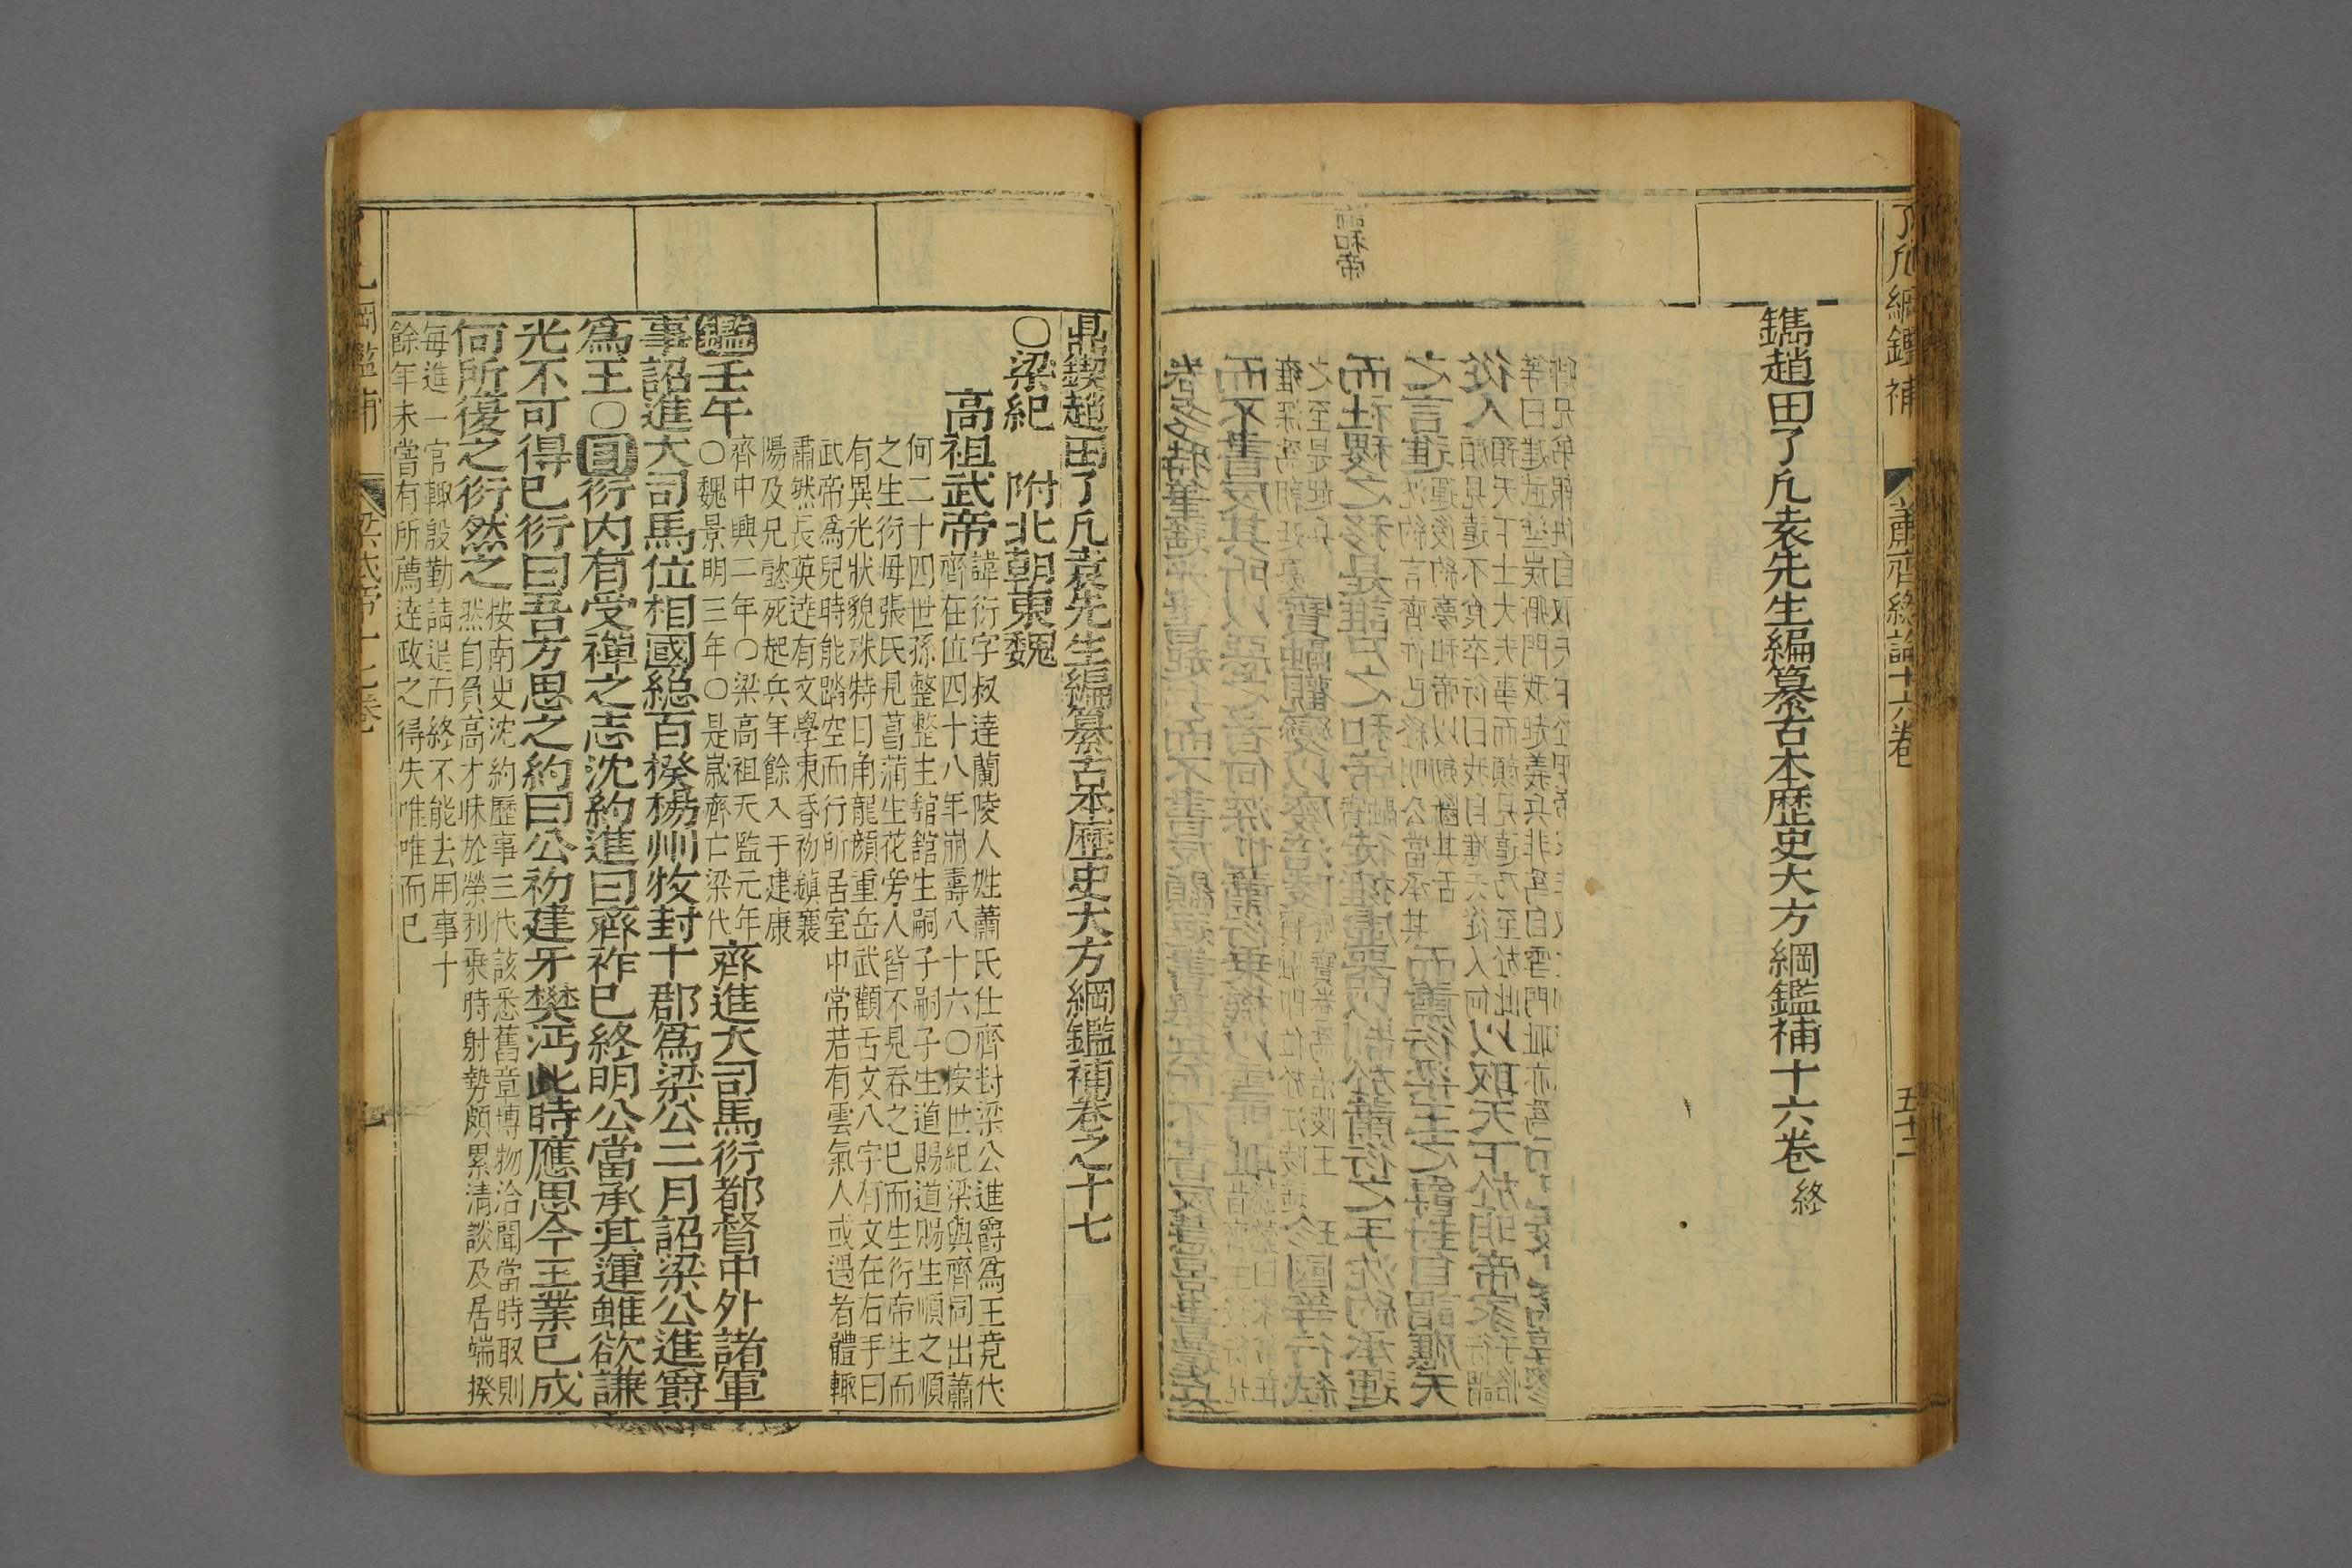 了凡綱鑑補
蕭齊總論十六卷
五十二
鐫趙田了凡袁先生編纂古本歷史大方綱鑑補十六卷終
鼎鍥趙田了凡袁先生編纂古本歷史大方綱鑑補卷之十七
○梁紀　附北朝東魏
高祖武帝
諱衍字叔達蘭陵人姓蕭氏仕齊封梁公進爵爲王竟代
齊在位四十八年崩壽八十六○按世紀梁與齊同出蕭
何二十四世孫整整生鎋鎋生嗣子嗣子生道賜道賜生順之順
之生衍母張氏見菖蒲生花旁人皆不見吞之已而生衍帝生而
有異光狀貌殊特日角龍顏重岳武顴舌文八字有文在右手曰
武帝爲兒時能踏空而行所居室中常若有雲氣人或遇者體輙
肅然長英達有文學東昏初鎮襄
陽及兄懿死起兵年餘入于建康
鑑壬午
齊中興二年○梁高祖天監元年
○魏景明三年○是歲齊亡梁代
齊進大司馬衍都督中外諸軍
事詔進大司馬位相國總百揆楊州牧封十郡爲梁公二月詔梁公進爵
爲王○衍内有受禪之志沈約進曰齊祚已終明公當承其運雖欲謙
光不可得已衍曰吾方思之約曰公初建牙樊沔此時應思今王業已成
何所復之衍然之
按南史沈約歷事三代該悉舊章博物洽聞當時取則
然自負高才昧於榮利乗時射勢頗累清談及居端揆
每進一官輙殷勤請退而終不能去用事十
餘年未嘗有所薦達政之得失唯唯而已